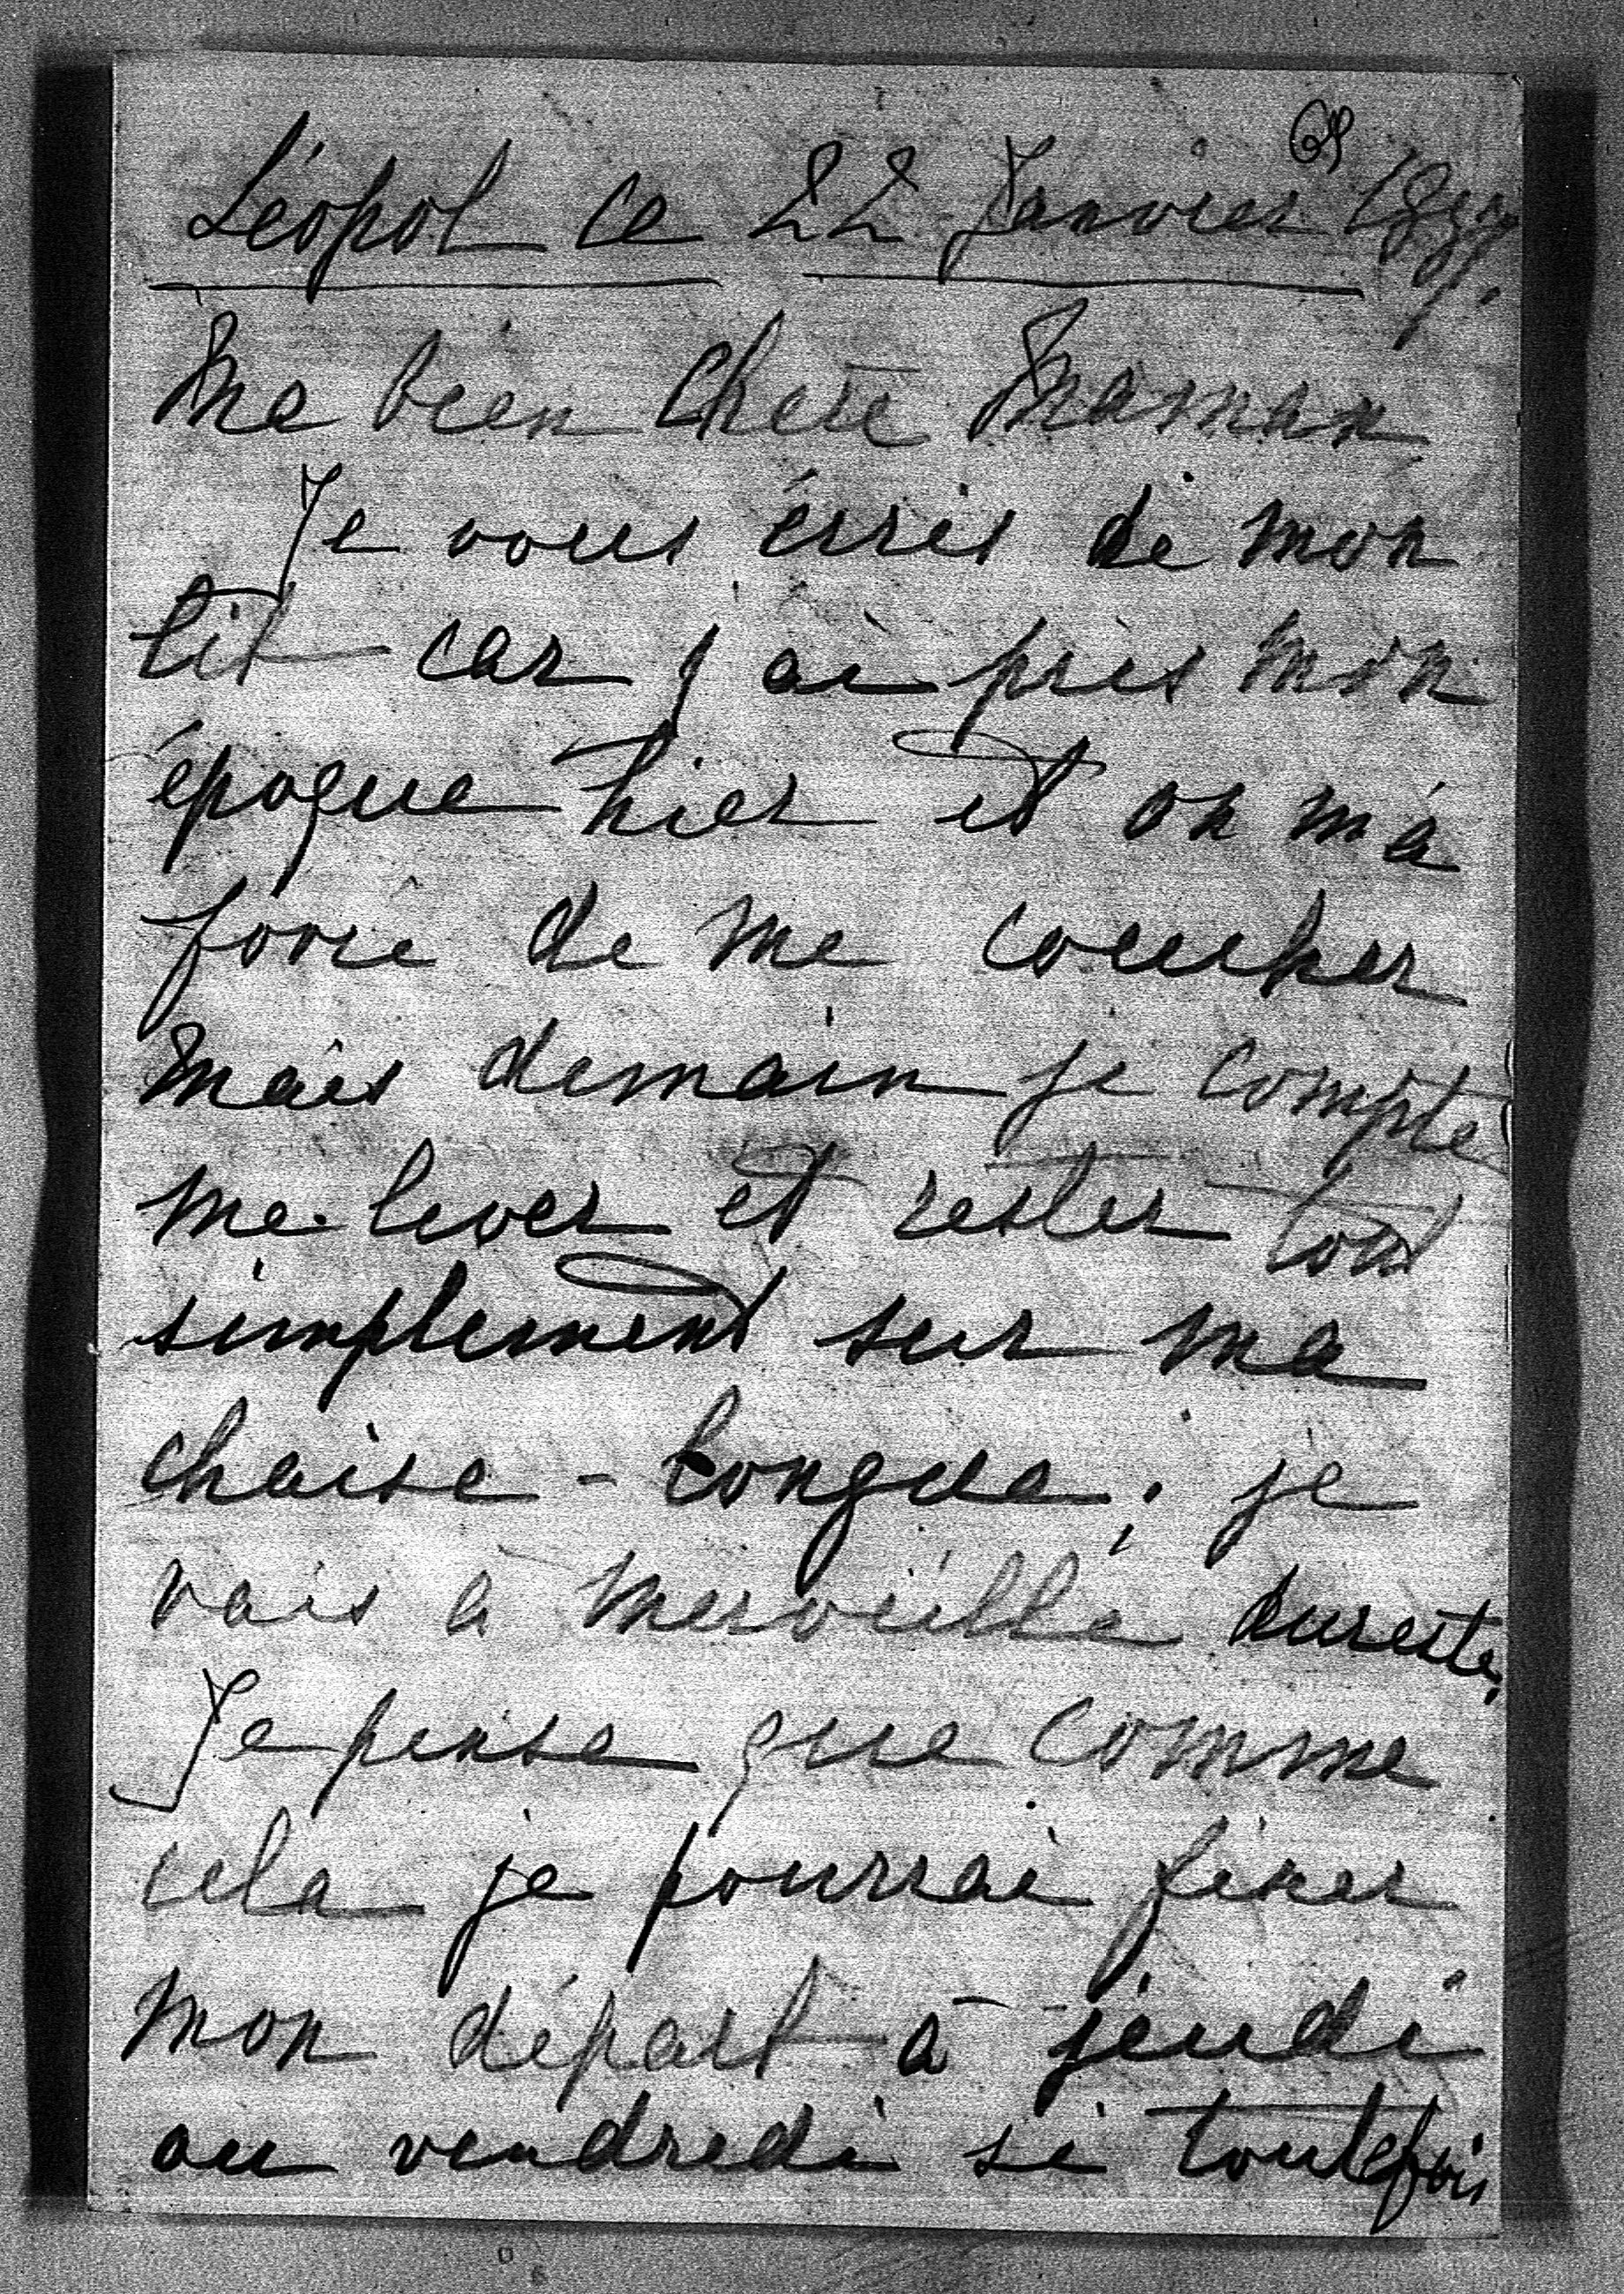 Léopol ce 22 Janvier
Ma bien chère Maman
Je vous écris de mon
lit car j'ai pris mon
époque hier et on m'a
forcé de me coucher
mais demain je compte
me lever et rester tout
simplement sur ma
chaise-longue ; je
vais à merveille dureste.
Je pense que comme
cela je pourrai fixer
mon départ à jeudi
ou vendredi si toutefois